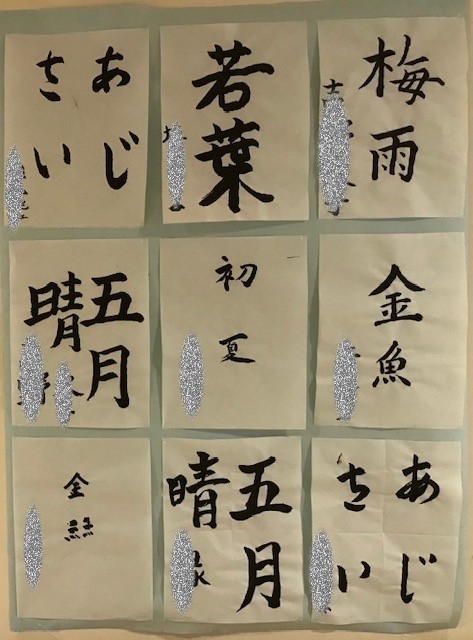 梅雨
若葉
あじ
さい
金魚
初夏
五月
晴
あじ
さい
五月
晴
金